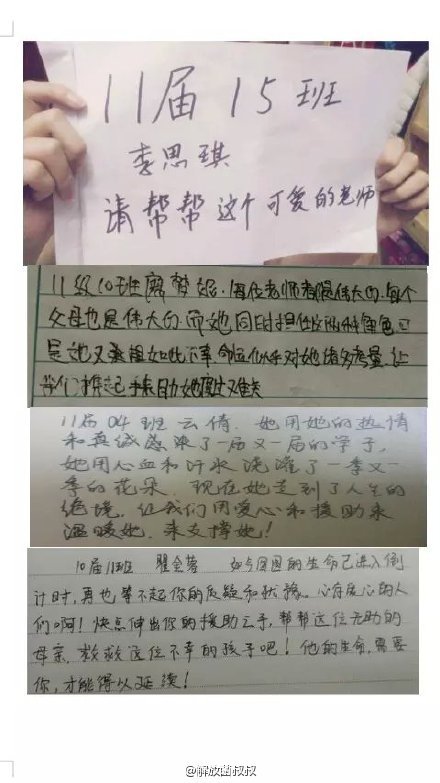 11届 15班
李思琪
请帮帮这个可爱的老师
11级10班 每位老师都是伟大的.每个
父母也是伟大的 而她同时担任这两种角色可
是她又承担如此不幸.命运似乎对她诸多考量.让
我们携起手来助她渡过难关
11届04班 云倩. 她用她的热情
和真诚感染了一届又一届的学子,
她用心血和汗水浇灌了一季又一
季的花朵. 现在她走到了人生的
绝境. 让我们用爱心和援助来
温暖她. 来支撑她!
10届11班 如今团团的生命已进入倒
计时,再也等不起你的迟疑和犹豫。心存良心的人
们啊! 快点伸出你的援助之手,帮帮这位无助的
母亲,救救这位不幸的孩子吧! 他的生命,需要
你,才能得以延续!
@解放菌叔叔